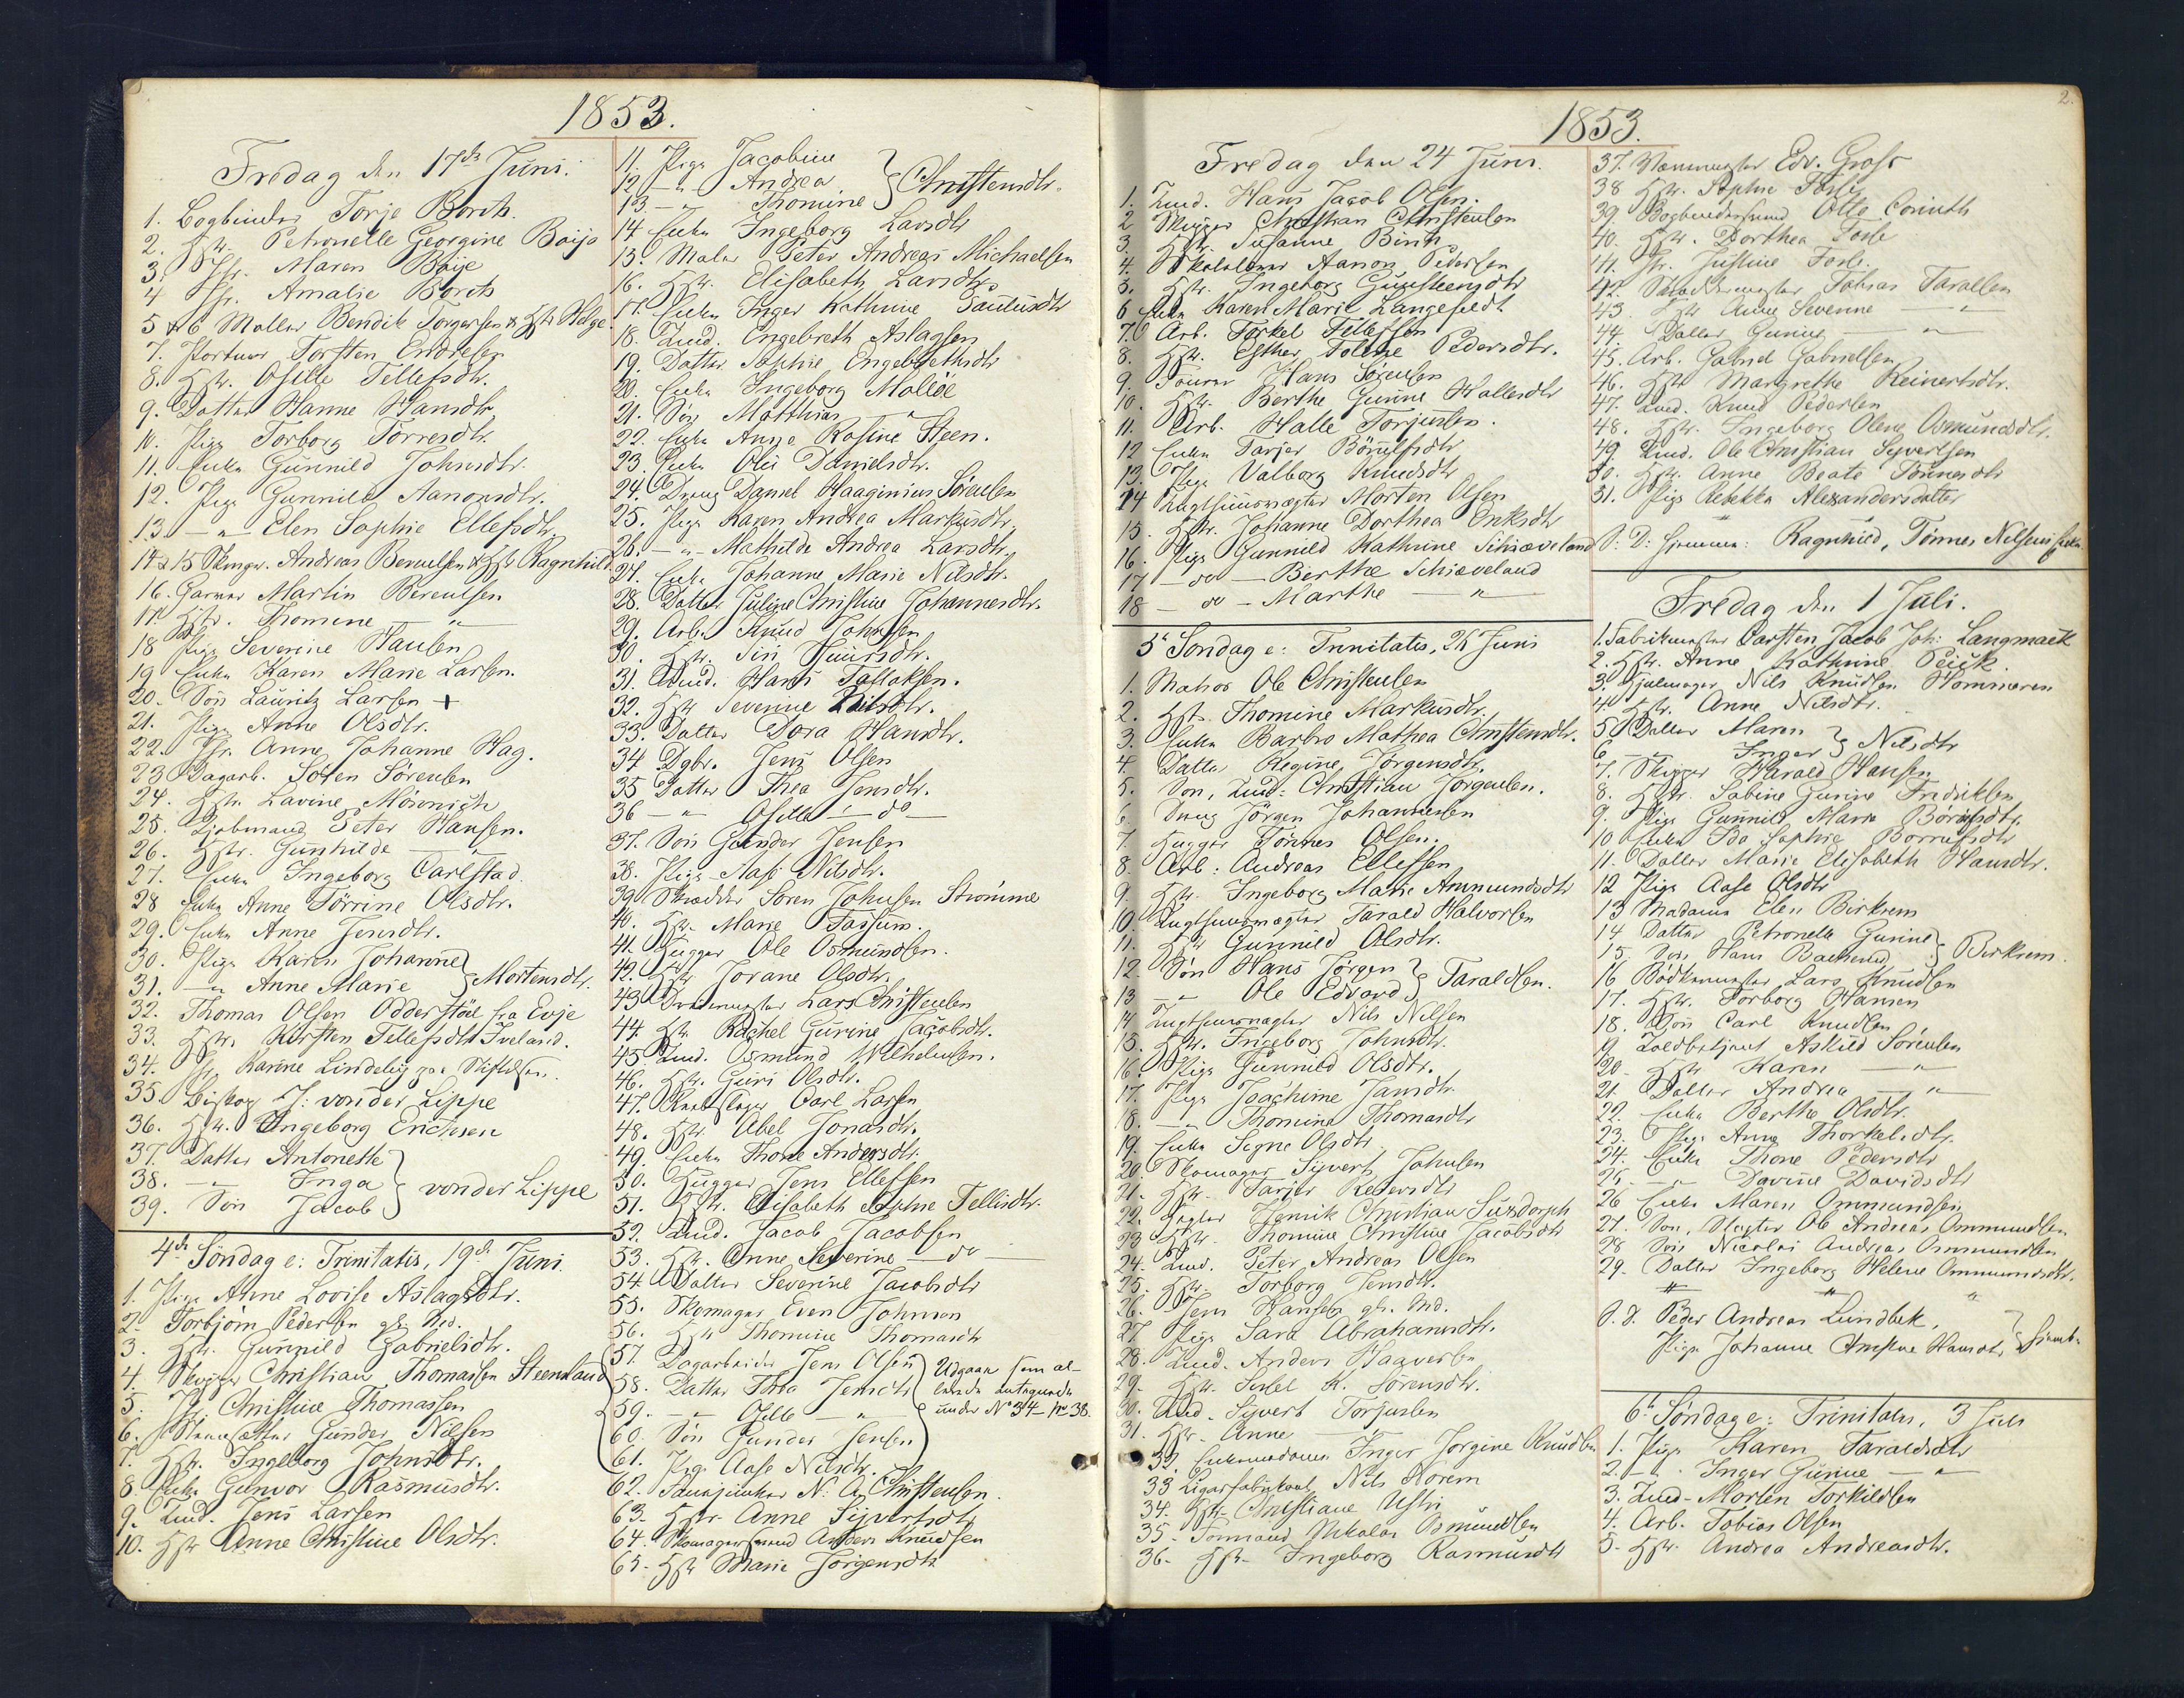 1853.
Fredag den 17de Juni.
1. Bogbinder Torje Borch.
2. Hstr. Petronelle Georgine Boije
3. Jfr. Maren Böije
4 Jfr. Amalie Borch
5 & 6 Møller Bendik Torgersen & Hstr Helge
7. Portner Torsten Endresen
8. Hstr. Osille Tellefsdtr.
9. Datter Hanne Hansdtr.
10. Pige Torborg Torresdtr.
11. Enke Gunnild Johnsdtr.
12. Pige Gunnild Aanonsdtr.
13 — " — Elen Sophie Ellefsdtr.
14 & 15 Skingr. Andreas Berentsen & Hstr Ragnhild
16. Garver Martin Berentsen
17. Hstr. Thomine — " —
18 Pige Severine Hansen
19 Enke Karen Marie Larsen.
20. Søn Lauritz Larsen +
21. Pige Anne Olsdtr.
22. Jfr. Anne Johanne Hag.
23 Dagarb. Sören Sörensen
24. Hstr. Lavine Mönnich
25. Kjøbmand Peter Hansen.
26. Hstr. Gunhilde — " —
27. Enke Ingeborg Carlstad
28 Enke Anne Törrine Olsdtr.
29. Enke Anne Jensdtr.
30. Pige Karen Johanne
31. — " Anne Marie } Mortensdtr.
32. Thomas Olsen Odderstöl fra Evje
33. Hstr. Kirsten Tellefsdtr Iveland.
34. Jfr Karine Lindelig paa Stiftelsen.
35. Biskop J: von der Lippe
36. Hstr. Ingeborg Erichsen
37. Datter Antonette
38. — " — Inga } von der Lippe
39. Søn Jacob
4de Söndag e: Trinitatis, 19de Juni.
1. Pige Anne Lovise Aslagsdtr.
2. Torbjörn Pedersen gl. Md.
3. Hstr. Gunnild Gabrielsdtr.
4. Skipper Christian Thomassen Steensland
5. Jfr. Christine Thomassen
6. Gunder Nilsen
7. Hstr. Ingeborg Johnsdtr.
8. Enke Gunvor Rasmusdtr.
9. Lmd. Jens Larsen
10. Hstr Anne Christine Olsdtr.
11. Pige Jacobine
12 — " — Andrea } Christensdtr.
13 — " — Thomine
14 Enke Ingeborg Larsdtr
15. Maler Peter Andreas Michaelsen
16. Hstr. Elisabeth Larsdtr.
17. Enke Inger Kathrine
18. Lmd. Engebreth Aslagsen
19. Datter Sophie Engebrethsdtr
20. Enke Ingeborg Malöe
21. Søn Matthias — " —
22. Enke Anne Rosine Steen.
23. Enke Oli Danielsdtr.
24. Dreng Daniel Haaginius Sörensen
25. Pige Karen Andrea Markusdtr.
26. — " — Mathilde Andrea Larsdtr.
27. Enke Johanne Marie Nilsdtr.
28. Datter Juline Christine Johannesdtr.
29. Arb. Knud Johnsen
30. Hstr. Siri
31. Lmd. Hans Tallaksen.
32. Hstr Severine Nilsdtr.
33. Datter Dora Hansdtr.
34 Dgbr. Jens Olsen
35 Datter Thea Jensdtr.
36 — " — Osille — do —
37. Søn Gunder Jensen
38. Pige Aase Nilsdtr.
39. Skrædder Sören Johnsen Strömme
40. Hstr. Marie Fassum.
41. Hugger Ole Osmundsen.
42. Hstr Jorane Olsdtr.
43 Lars Christensen
44. Hstr Rachel Gurine Jacobsdtr.
45. Lmd. Osmund Wilhelmsen.
46. Hstr. Guri Olsdtr.
47. Carl Larsen
48. Hstr Abel Jonasdtr.
49. Enke Thone Andersdtr.
50. Hugger Jens Ellefsen
51. Hstr. Elisabeth Sophie Tellisdtr.
52. Lmd. Jacob Jacobsen
53. Hstr. Anne Severine — do —
54. Datter Severine Jacobsdtr
55. Skomager Even Johnsen
56. Hstr Thomine Thomasdtr
57. Dagarbeider Jens Olsen } Udgaar som al-
58. Datter Thea Jensdtr } lerede antegnede
59. — " — Osille — " — } under No 34 – No 38.
60. Søn Gunder Jensen
61. Pige Aase Nilsdtr.
62. N. A. Christensen.
63. Hstr. Anne Sijvertsdtr
64. Skomagersvend Anders Knudsen
65. Hstr Marie Jörgensdtr
2.
1853.
Fredag den 24 Juni.
1. Lmd. Hans Jacob Olsen.
2 Skipper Christian Christensen
3. Hstr. Susanne Birch
4. Skolelærer Aanon Pedersen
5. Hstr. Ingeborg Gunsteensdtr
6 Enke Karen Marie Langefeldt
7. Arb. Torkel Tellefsen
8. Hstr. Esther Tolline Pedersdtr.
9. Hans Sörensen
10. Hstr. Berthe Gurine Hallesdtr
11. Arb. Halle Torjusen.
12 Enke Tarjer Börnelfsdtr
13. Pige Valborg Knudsdtr
14 Tugthuusvægter Morten Olsen
15. Hstr. Johanne Dorthea Eriksdtr
16. Pige Gunnild Kathrine Schiæveland
17 — do — Berthe Schiæveland
18 — do — Marthe — " —
5te Söndag e: Trinitatis, 26 Juni
1. Matros Ole Christensen
2. Hstr. Thomine Markusdtr.
3. Enke Barbro Mathea Christensdtr.
4. Datter Regine Jörgensdtr.
5. Søn, Lmd: Christian Jörgensen.
6. Dreng Jörgen Johannesen
7. Hugger Tönnes Olsen.
8. Arb: Andreas Ellefsen
9. Hstr. Ingeborg Marie Ammundsdtr
10. Tugthuusvægter Tarald Halvorsen
11. Hstr Gunnild Olsdtr.
12. Søn Hans Jörgen
13 — " — Ole Edvard } Taraldsen.
14 Tugthuusvægter Nils Nilsen
15. Hstr. Ingeborg Johnsdtr.
16. Pige Gunnild Olsdtr.
17. Pige Joachime Jansdtr.
18. — " — Thomine Thomasdtr
19. Enke Signe Olsdtr.
20. Skomager Sijvert Johnsen
21. Hstr. Tarjer Reiersdtr
22. Henrik Christian Suxdorph
23 Hstr. Thomine Christine Jacobsdtr
24. Lmd. Peter Andreas Olsen
25. Hstr. Torborg Jensdtr.
26. Jens Hansen gl. Md.
27 Pige Sara Abrahamsdtr.
28. Lmd. Anders Haaversen
29. Hstr. Sissel K. Sörensdtr.
30. Lmd. Sijvert Torjusen
31. Hstr. Anne — " —
32. Enkemadame Inger Jorgine Knudsen
33 Cigarfabrikant Nils Norem
34. Hstr. Christiane
35. Formand Nikolai Osmundsen
36. Hstr. Ingeborg Rasmusdtr
37. Edv. Gross
38 Hstr. Sophie Forse
39. Bogbindersvend Otto Corinth
40. Hstr. Dorthea Forse
41. Jfr. Justine Forse.
42. Tobias Taralsen
43. Hstr Anne Severine — " —
44. Datter Gunine — " —
45. Arb. Gabriel Gabrielsen
46. Hstr Margrethe Reinertsdtr.
47. Lmd. Knud Pedersen
48. Hstr. Ingeborg Olene Osmundsdtr.
49. Lmd. Ole Christian Syvertsen
50. Hstr. Anne Beate Tönnesdtr
51. Pige Rebekka Alexandersdatter
S. D: hjemme: Ragnhild, Tönnes Nilsens Enke.
Fredag den 1 Juli.
1. Fabrikmester Carsten Jacob Joh: Langmack
2. Hstr. Anne Kathrine Peick.
3. Hjulmager Nils Knudsen Hommeren
4 Hstr. Anne Nilsdtr.
5 Datter Maren
6 — " — Inger } Nilsdtr
7. Skipper Harald Hansen
8. Hstr. Sabine Gurine Fredriksen
9. Pige Gunnild Marie Börresdtr.
10 Enke Bo Sophie
11. Datter Marie Elisabeth Hansdtr.
12 Pige Aase Olsdtr
13 Madame Elen Birkrem
14 Datter Petronelle Gurine
15. Søn Hans Bacherud } Birkrem.
16 Bödkermester Lars Knudsen
17. Hstr. Torborg Hansen
18. Søn Carl Knudsen
19 Toldbetjent Askild Sörensen
20. Hstr Karen — " —
21 Datter Andrea — " —
22. Enke Berthe Olsdtr.
23. Pige Anne Thorkelsdtr.
24. Enke Thone Pedersdtr
25. — " — Davine Davidsdtr
26 Enke Maren Ommundsen
27. Søn, Ole Andreas Ommundsen
28 Søn Nicolai Andreas Ommundsen
29. Datter Ingeborg Helene Ommundsdtr.
S. D. Peder Andreas Lundbek,
Pige Johanne Hansdtr. } hjemme
6te Söndag e: Trinitatis, 3 Juli
1. Pige Karen Taraldsdtr
2. — " — Inger Gurine — " —
3. Lmd. Morten Torkildsen
4. Arb. Tobias Olsen
5. Hstr. Andrea Andreasdtr.